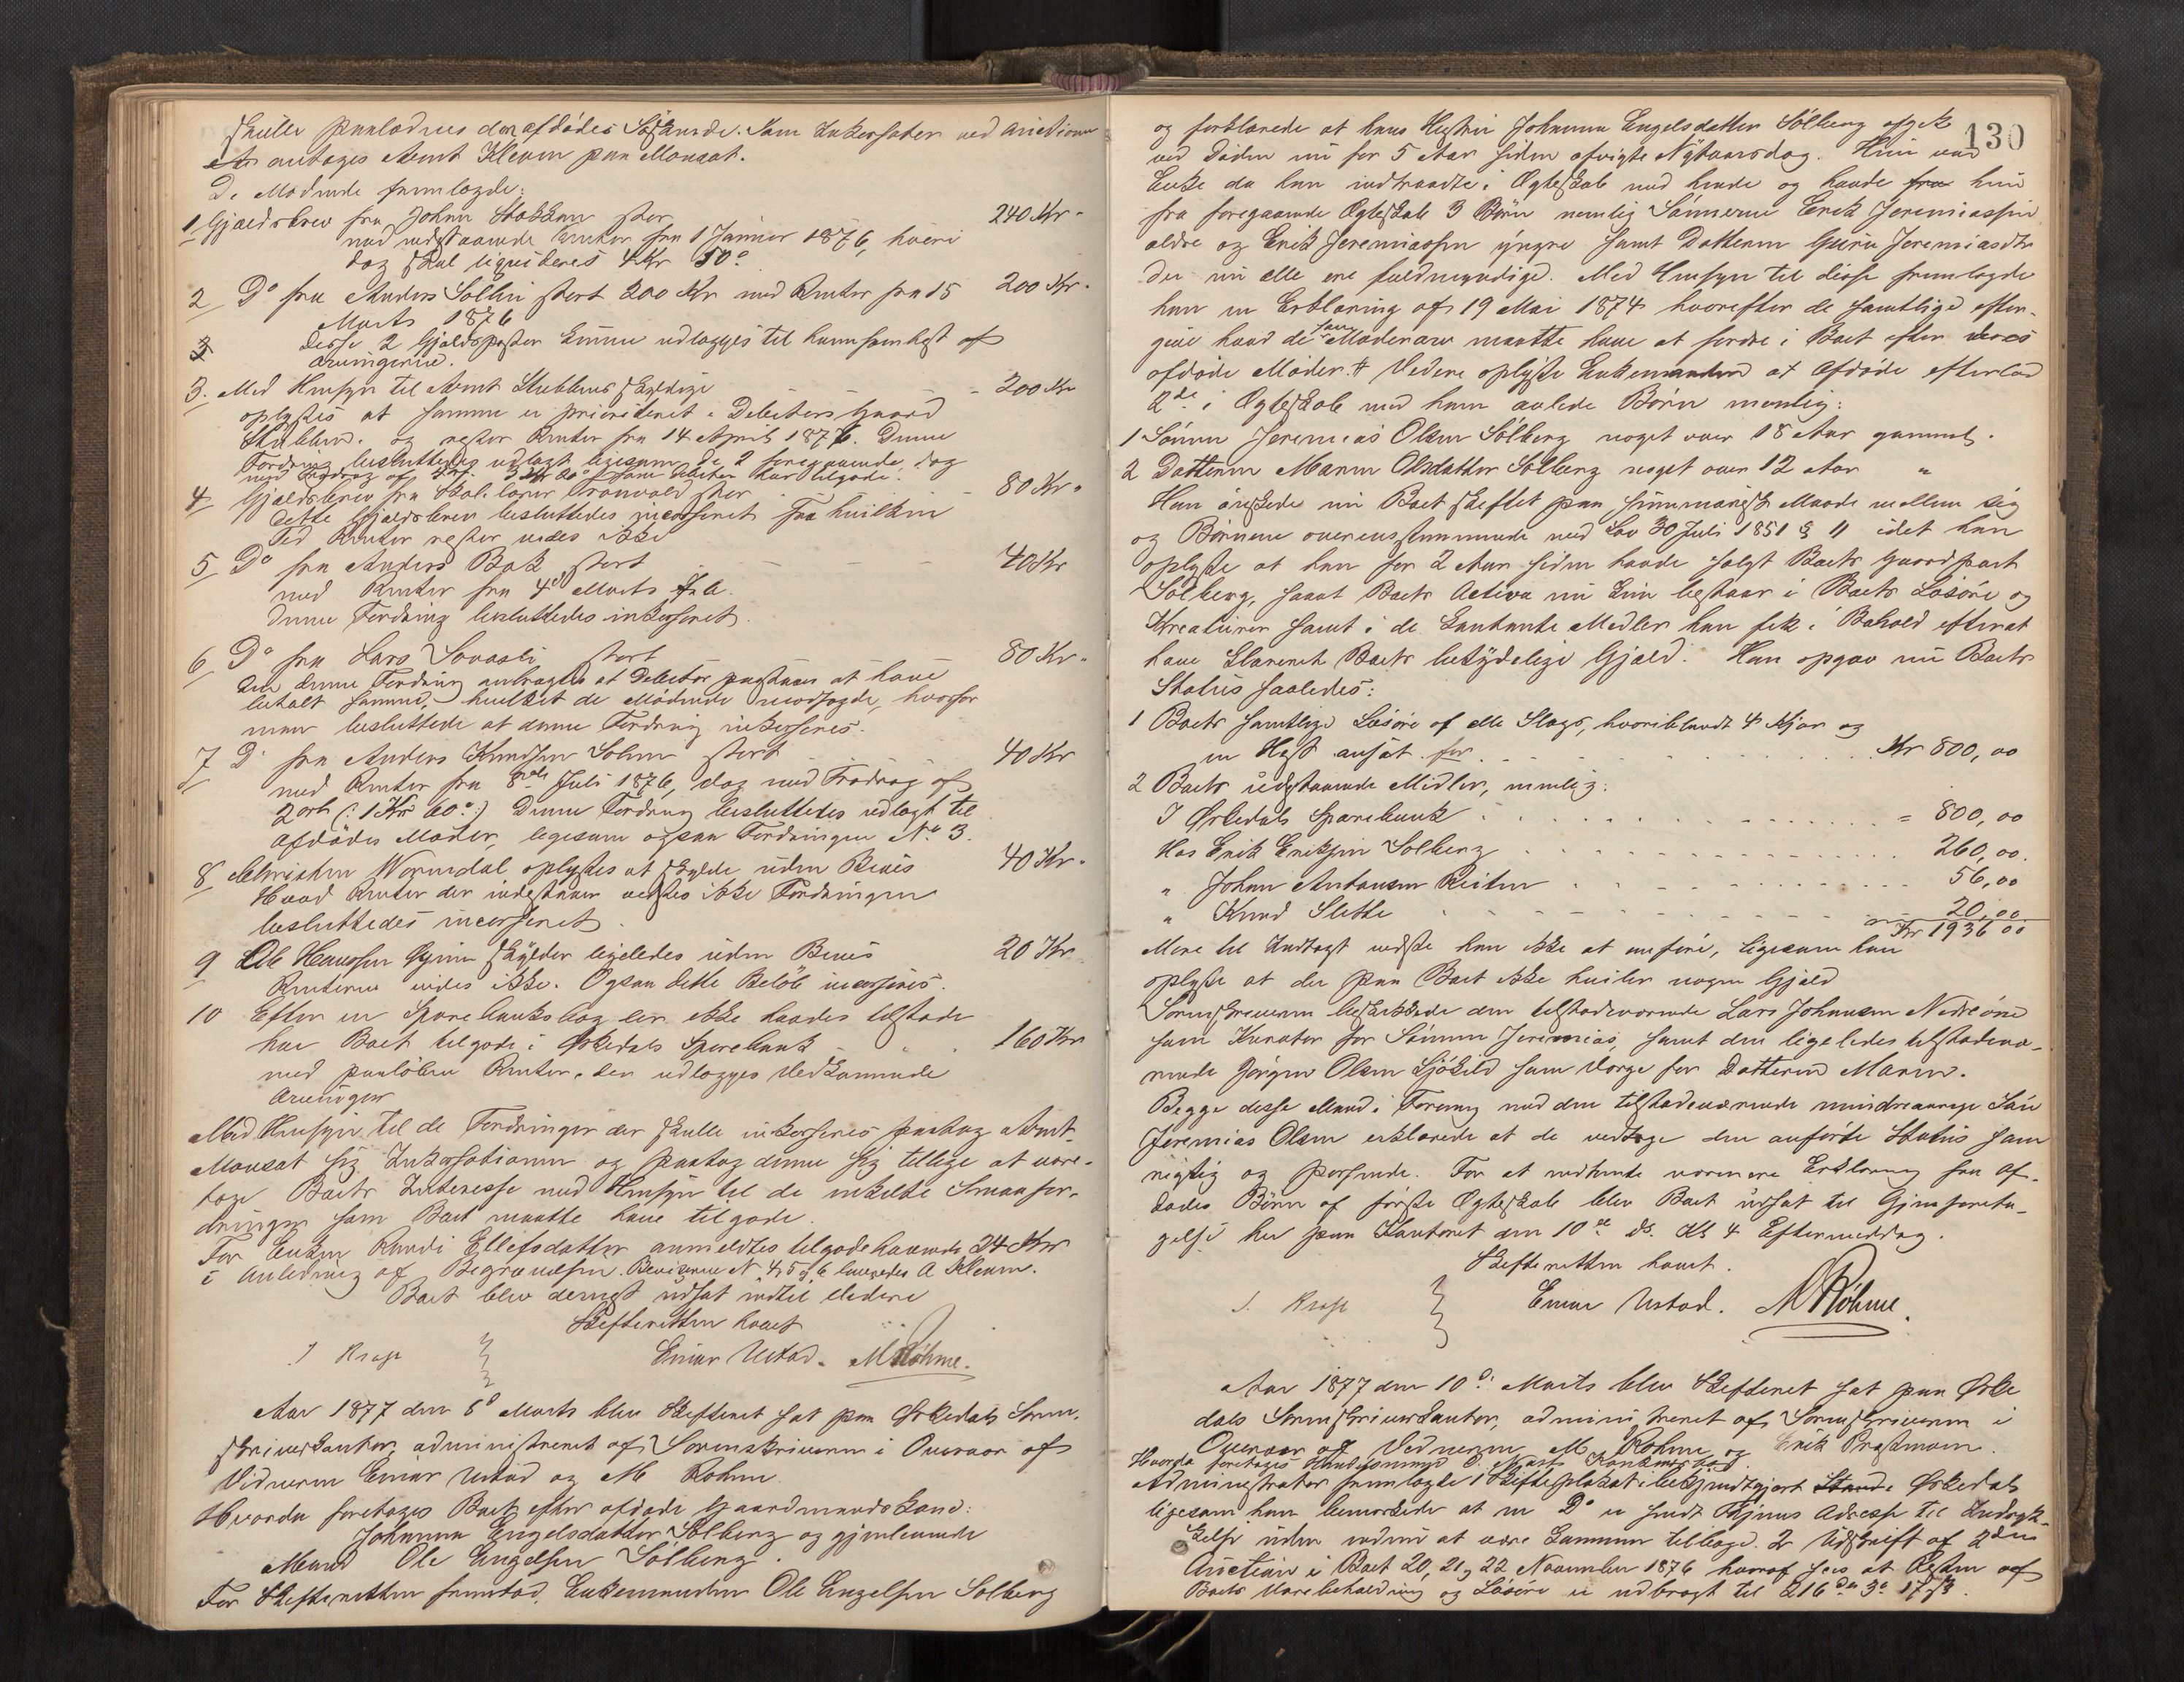 skulle paalødnes den afdødes Søskende. Som Inkassator ved Auctionen
antages Arnt Kleven paa Monsat.
De Mødende fremlagde:
1 Gjældsbrev fra Johan Stokkan stor 240 Kr.
med vedstaaende Renter fra 1 Januar 1876, hvori
dog skal liquideres 4 Kr 50 ø
2 Do fra Anders Solli stort 200 Kr med Renter fra 15 200 Kr.
Marts 1876
Disse 2 Gjældsposter kunne udlægges til hvemsomhelst af
Arvingerne.
3. Med Hensyn til Arnt Stubbens skyldige 200 Kr
oplystes at samme er prioriteret i Debitors Gaard
Stubben og rester Renter fra 14 April 1876. Denne
Fordring besluttedes udlagt ligesom de 2 foregaaende, dog
med Fradrag af som Debitor har tilgode.
4 Gjældsbrev fra Skolelærer Grønvold stor 80 Kr.
Dette Gjældsbrev besluttedes incasseret fra hvilken
Tid Renter rester vides ikke
5 Do fra Anders Bak stort 40 Kr
med Renter fra 4de Marts f. A.
Denne Fordring besluttedes inkasseret.
6 Do fra Lars Lovasli stort 80 Kr.
Om denne Fordring anbragtes at Debitor paastaaer at have
betalt samme, hvilket de Mødende modsagde, hvorfor
man besluttede at denne Fordring inkasseres.
7 Do fra Anders Knudsen Solem stort 40 Kr
med Renter fra 8de Juli 1876, dog med Fradrag af
2 ort (: 1 Kr 60 ø :) Denne Fordring besluttedes udlagt til
Afdødes Moder, ligesom ogsaa Fordringen No 3.
8 Christen Wormdal oplystes at skylde uden Bevis 40 Kr.
Hvad Renter der indestaaer vidstes ikke Fordringen
besluttedes incasseret
9 Ole Hanssen skylder ligeledes uden Bevis 20 Kr
Renterne vides ikke. Ogsaa dette Beløb incasseres.
10 Efter en Sparebanksbog der ikke havdes tilstede
har Boet tilgode i Ørkedals Sparebank 160 Kr
med paaløbne Renter, der udlægges Vedkommende
Arvinger
Med Hensyn til de Fordringer der skulle inkasseres paatog Arnt
Monsat sig Inkassationen og paatog denne sig tillige at vare-
tage Boets Interesse med Hensyn til de enkelte Smaafor-
dringer som Boet maatte have tilgode.
For Enken Randi Ellefsdatter anmeldtes tilgodehavende 24 Kr
i Anledning af Begravelsen. Beviserne No 4, 5 og 6 leveredes A Kleven.
Boet blev dernæst udsat indtil videre
Skifteretten hævet
J Krage Einar Ustad. M Rohme.
Aar 1877 den 8de Marts blev Skifteret sat paa Ørkedals Soren-
skriverkontor, administreret af Sorenskriveren i Overvær af
Vidnerne Einar Ustad og M Rohme
Hvorda foretages Boet efter afdøde Gaardmandskone:
Johanna Engelsdatter Solberg og gjenlevende
Mand Ole Engelsen Solberg.
For Skifteretten fremstod Enkemanden Ole Engelsen Solberg
130
og forklarede at hans Hustru Johanna Engelsdatter Solberg afgik
ved Døden nu for 5 Aar siden afvigte Nytaarsdag. Hun var
Enke da han indtraadte i Ægteskab med hende og havde fra hun
fra foregaaende Ægteskab 3 Børn nemlig Sønnerne Erik Jeremiassen
ældre og Erik Jeremiassen yngre samt Datteren Guru Jeremiasdtr
der nu alle ere fuldmyndige. Med Hensyn til disse fremlagde
han en Erklæring af 19 Mai 1874 hvorefter de samtlige efter-
give hvad de som Mødrenarv maatte have at fordre i Boet efter deres
afdøde Moder. Videre oplyste Enkemanden at Afdøde efterlod
2de i Ægteskab med ham avlede Børn nemlig:
1 Sønnen Jeremias Olsen Solberg noget over 18 Aar gammel.
2 Datteren Maren Olsdatter Solberg noget over 12 Aar "
Han ønskede nu Boet skiftet paa summarisk Maade mellem sig
og Børnene overensstemmende med Lov 30 Juli 1851 § 11 idet han
oplyste at han for 2 Aar siden havde solgt Boets Gaardpart
Solberg, samt Boets Activa nu kun bestaar i Boets Løsøre og
Kreaturer samt i de kontante Midler han fik i Behold efterat
have klareret Boets betydelige Gjæld. Han opgav nu Boets
Status saaledes:
1 Boets samtlige Løsøre af alle Slags, hvoriblandt 4 Kjør og
en Hest ansat for Kr 800,00
2 Boets udestaaende Midler, nemlig:
I Ørkedals Sparebank = 800,00
Hos Erik Eriksen Solberg 260,00.
" Johan Antonsen Reiten 56,00
" Knud Slette 20,00
Kr 1936 00
Mere til Indtægt vidste han ikke at anføre, ligesom han
oplyste at der paa Boet ikke hviler nogen Gjæld
Sorenskriveren beskikkede den tilstedeværende Lars Johnsen Nedreøne
som Kurator for Sønnen Jeremias, samt den ligeledes tilstedevæ-
rende Jørgen Olsen Ljøkild som Værge for Datteren Maren.
Begge disse Mænd i Forening med den tilstedeværende mindreaarige Søn
Jeremias Olsen erklærede at de vedtoge den anførte Status som
rigtig og passende. For at indhente nærmere Erklæring fra Af-
dødes Børn af første Ægteskab blev Boet udsat til Gjenforeta-
gelse her paa Kontoret den 10de ds. Kl 4 Eftermiddag.
Skifteretten hævet.
J. Krage Einar Ustad. M Rohme.
Aar 1877 den 10de Marts blev Skifteret sat paa Ørke
dals Sorenskriverkontor, administreret af Sorenskriveren i
Overvær af Vidnerne M Rohme og Erik Præstmoen.
Hvorda foretages Handelsmand
Administrator fremlagde 1 Skifteplakat bekjendtgjort Ørkedal
ligesom han bemærkede at en Do er sendt Adresse til Indryk-
kelse uden endnu at være kommen tilbage. 2 Udskrift af 2den
Auction i Boet 20, 21 og 22 November 1876 hvoraf sees at Resten af
Boets Varebeholdning og Løsøre er udbragt til 216 Spd 3 ø 17 ß.